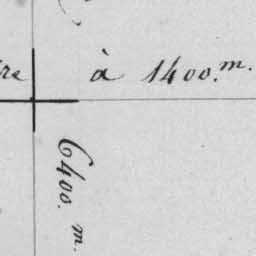 re à 1400.m.
6400. m.